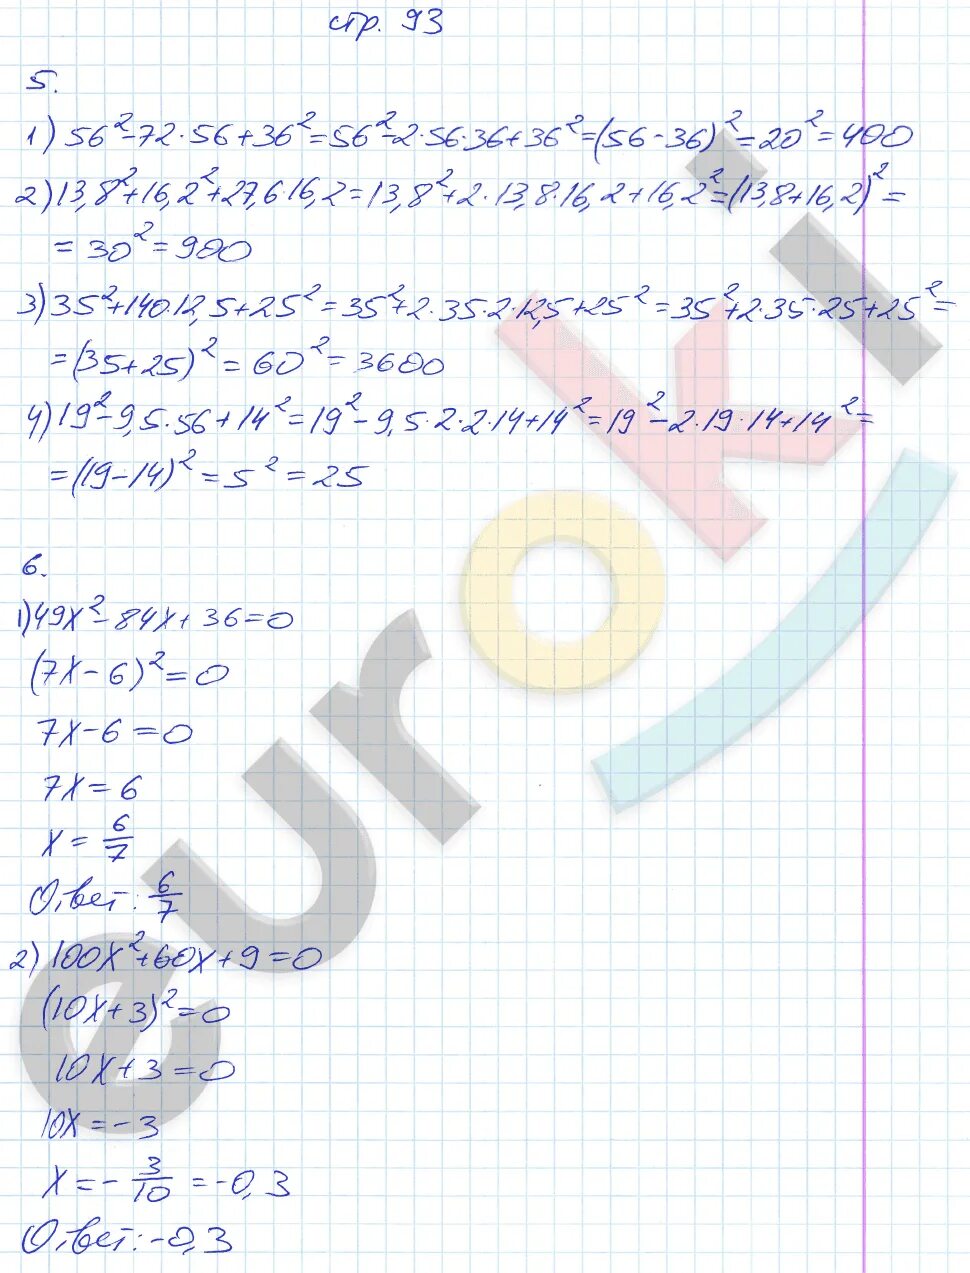 стр. 93
5.
1) 56²-72·56+36²=56²-2·56·36+36²=(56-36)²=20²=400
2) 13,8²+16,2²+27,6·16,2=13,8²+2·13,8·16,2+16,2²=(13,8+16,2)²=
=30²=900
3) 35²+140·12,5+25²=35²+2·35·2·12,5+25²=35²+2·35·25+25²=
=(35+25)²=60²=3600
4) 19²-9,5·56+14²=19²-9,5·2·2·14+14²=19²-2·19·14+14²=
=(19-14)²=5²=25
6.
1) 49x²-84x+36=0
(7x-6)²=0
7x-6=0
7x=6
x=6/7
Ответ: 6/7
2) 100x²+60x+9=0
(10x+3)²=0
10x+3=0
10x=-3
x=-3/10=-0,3
Ответ: -0,3
euroki